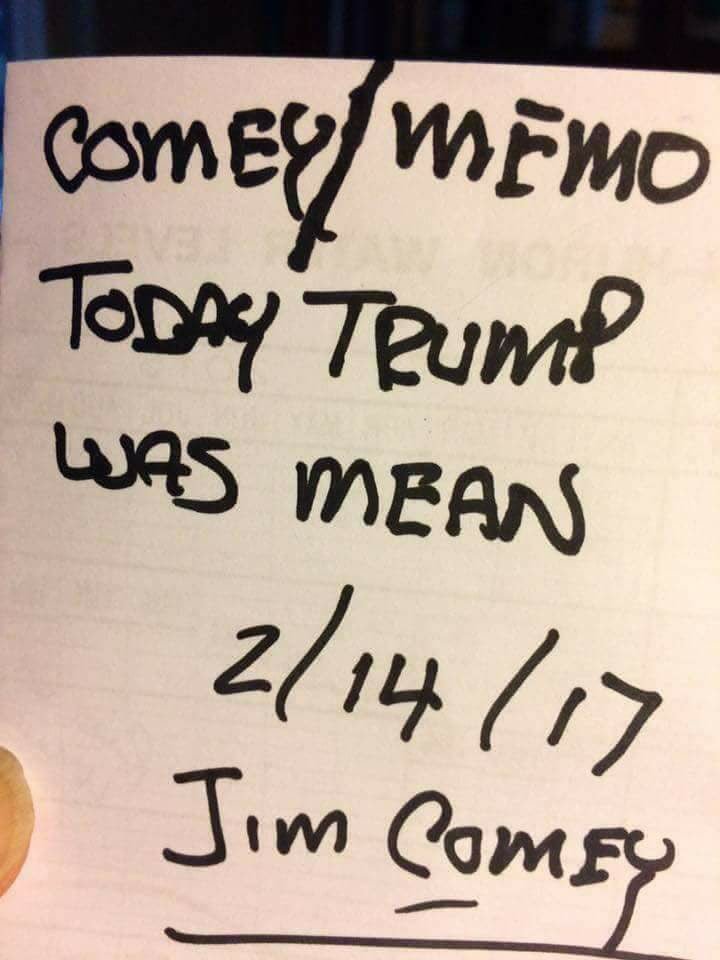 COMEY/MEMO
TODAY TRUMP
WAS MEAN
2/14/17
Jim Comey